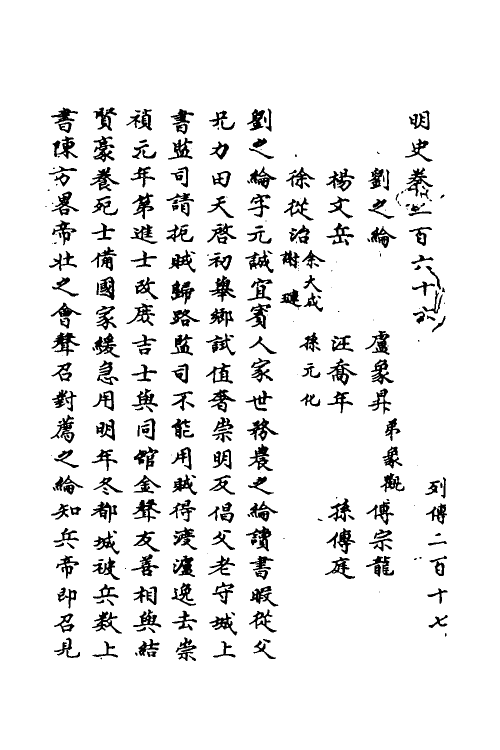 明史卷三百六十六 列傳二百十七
劉之綸 盧象昇 弟象觀 傅宗龍
楊文岳 汪喬年 孫傳庭
徐從治 余大成 謝璉 孫元化
劉之綸字元誠宜賓人家世務農之綸讀書暇從父
兄力田天啓初舉鄉試值奢崇明反倡父老守城上
書監司請扼賊歸路監司不能用賊得渡瀘逸去崇
禎元年第進士改庶吉士與同館金聲友善相與結
賢豪養死士備國家緩急用明年冬都城被兵數上
書陳方畧帝壯之會聲召對薦之綸知兵帝即召見